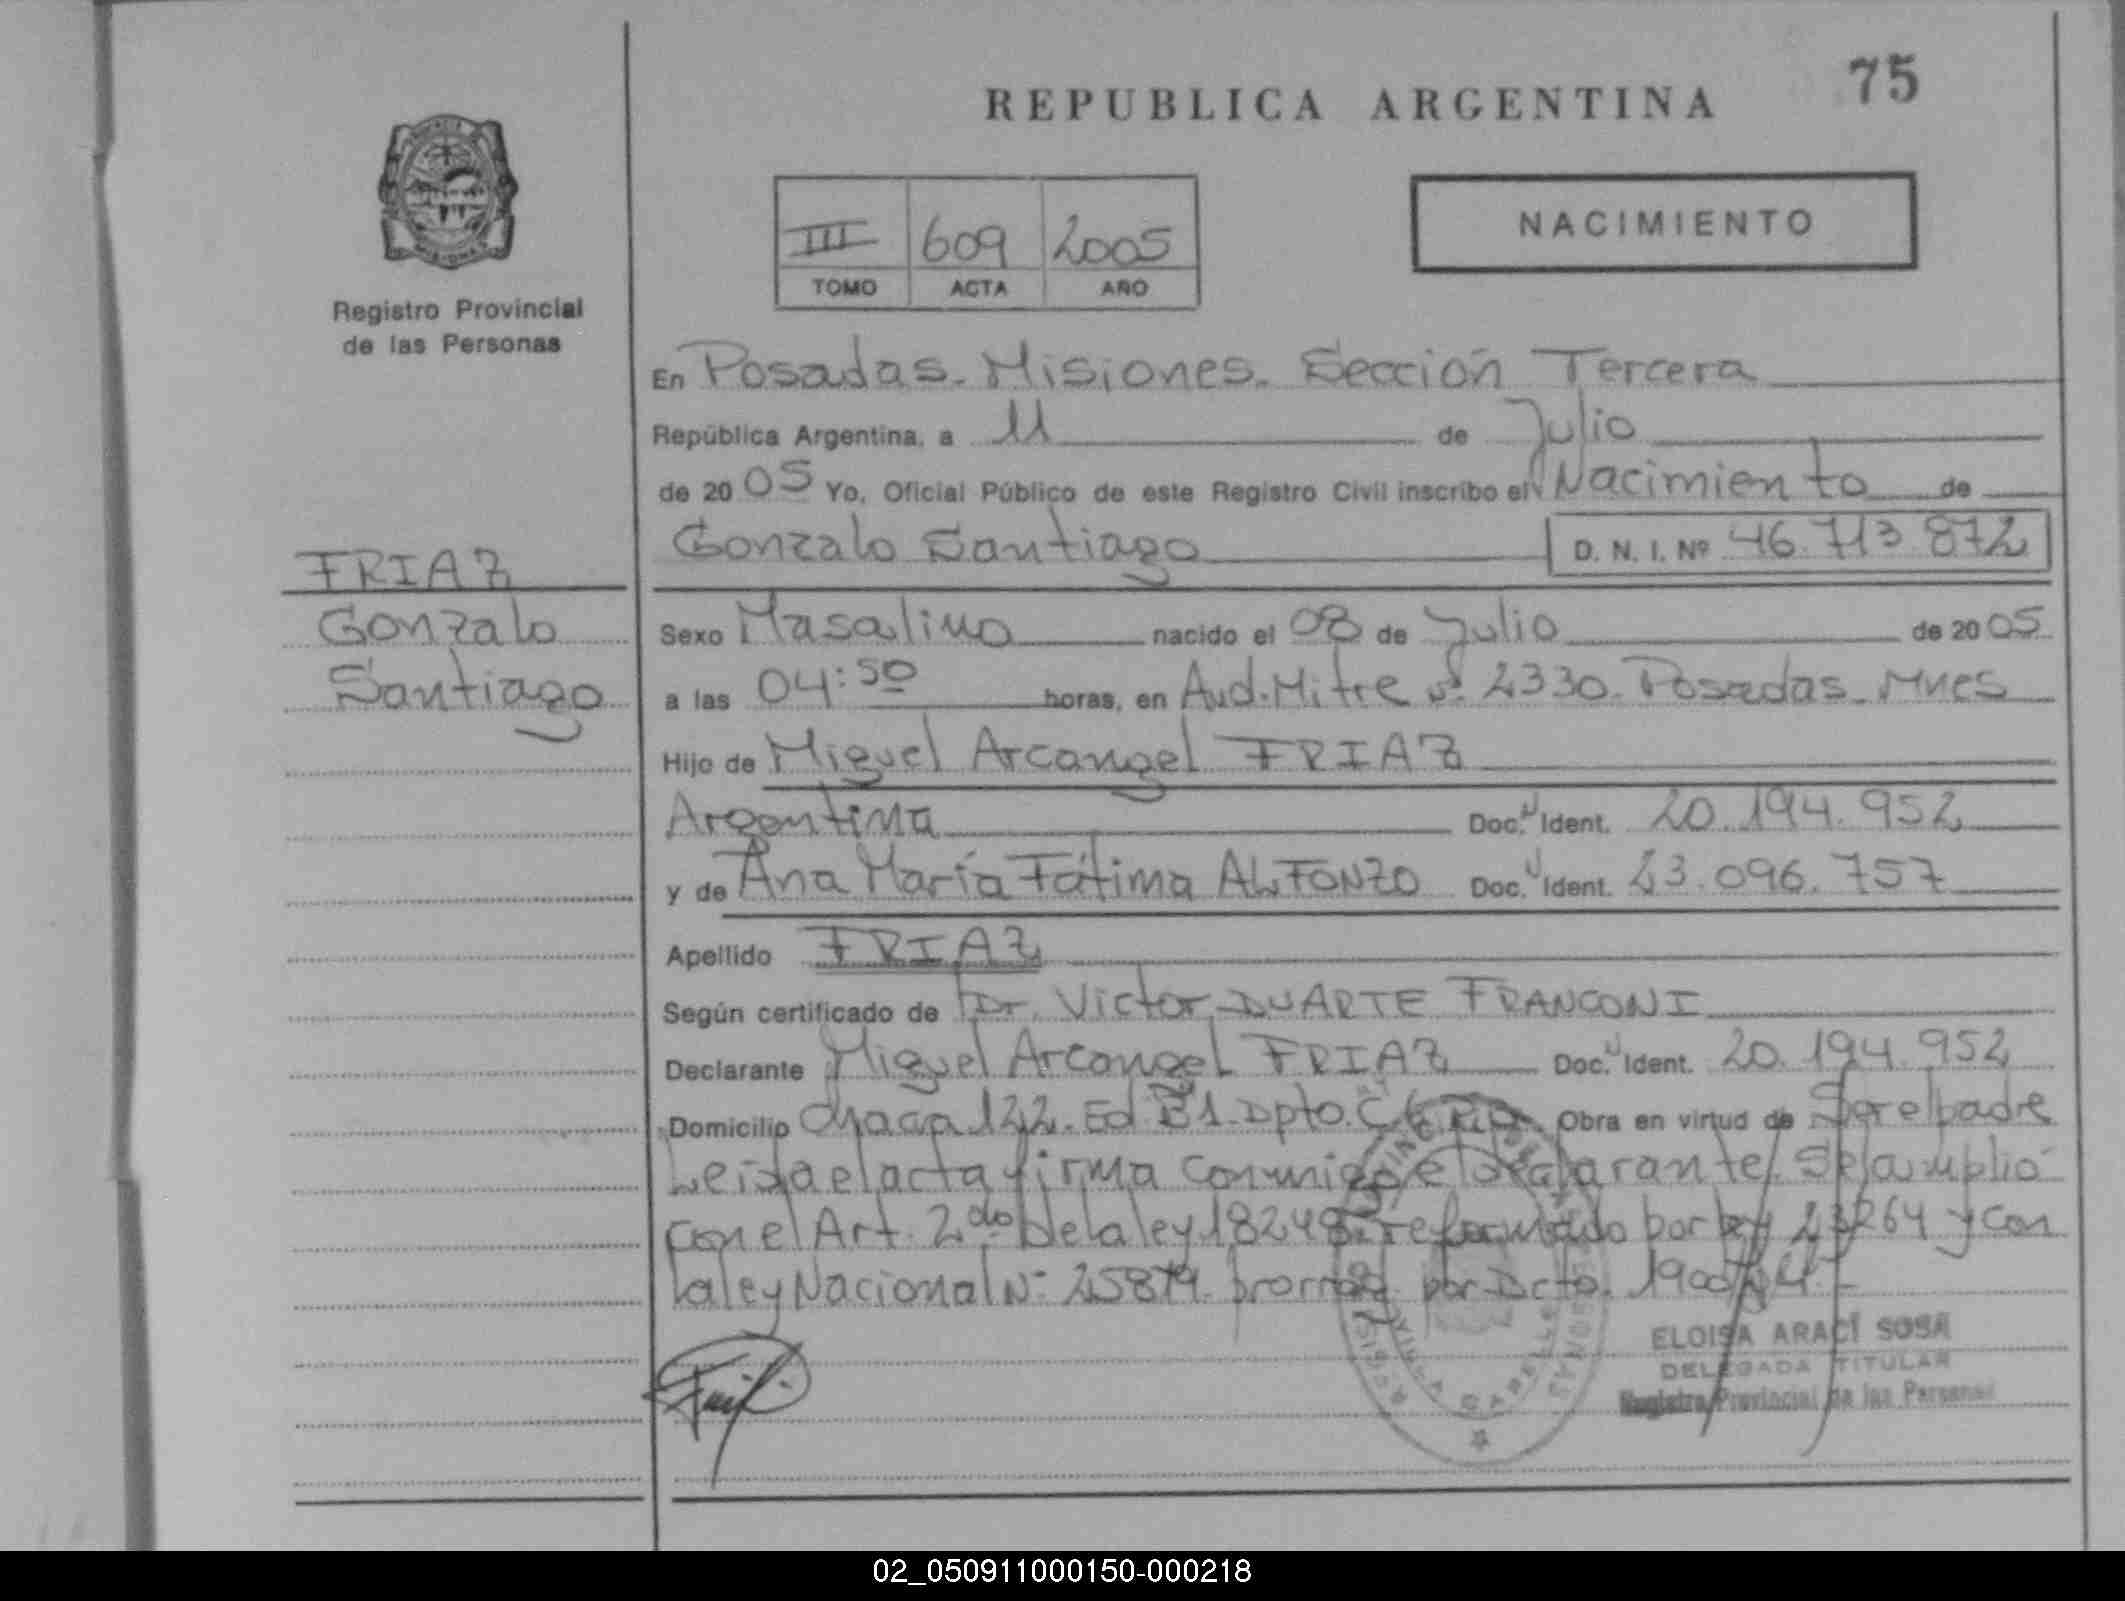 REPUBLICA ARGENTINA
75
III 609 2005
TOMO ACTA AÑO
NACIMIENTO
Registro Provincial
de las Personas
FRIAZ
Gonzalo
Santiago
En Posadas. Misiones. Sección Tercera
República Argentina, a 11 de Julio
de 2005 Yo, Oficial Público de este Registro Civil inscribo el Nacimiento de
Gonzalo Santiago D. N. I. Nº 46.713.872
Sexo Masculino nacido el 08 de Julio de 2005
a las 04:50 horas, en Avd. Mitre Nº 2330. Posadas. Mnes
Hijo de Miguel Arcangel FRIAZ
Argentina Doc. Ident. 20.194.952
y de Ana María Fátima ALFONZO Doc. Ident. 23.096.757
Apellido FRIAZ
Según certificado de Dr. Victor DUARTE FRANCONI
Declarante Miguel Arcangel FRIAZ Doc. Ident. 20.194.952
Domicilio Chaca 122. Ed B1. Dpto. C Obra en virtud de Ser el padre
Leida el acta firma conmigo el declarante. Se amplió
con el Art. 2do de la ley 18248 reformado por ley 23264 y con
la ley Nacional Nº 25819. prorrog. por Dcto. 1900/04.-
ELOISA ARACÍ SOSA
DELEGADA TITULAR
Registro Provincial de las Personas
02_050911000150-000218